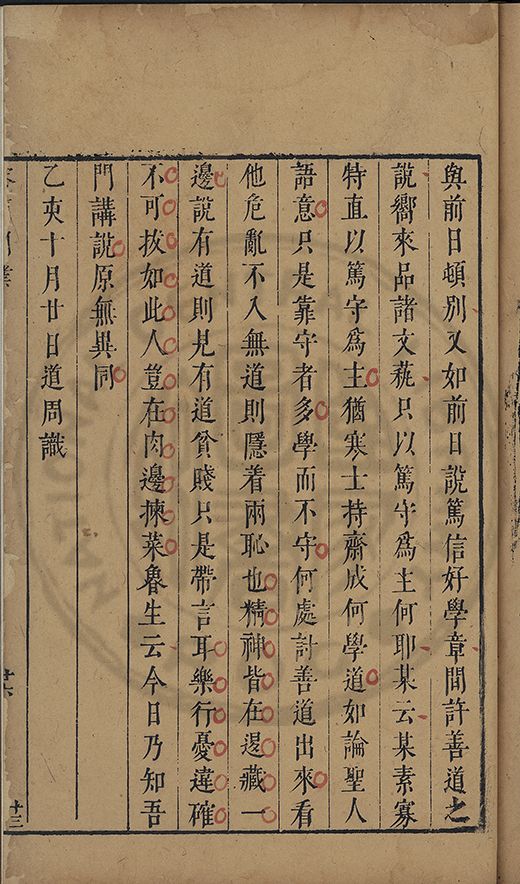 與前日頓別又如前日說篤信好學章間許善道之
說嚮來品諸文蓺只以篤守為主何耶某云某素寡
特直以篤守為主猶寒士持齋成何學道如論聖人
語意只是靠守者多學而不守何處討善道出來看
他危亂不入無道則隱着兩恥也精神皆在退藏一
邊說有道則見有道貧賤只是帶言耳樂行憂違確
不可拔如此人豈在肉邊揀菜魯生云今日乃知吾
門講說原無異同
乙亥十月廿日道周識
十三